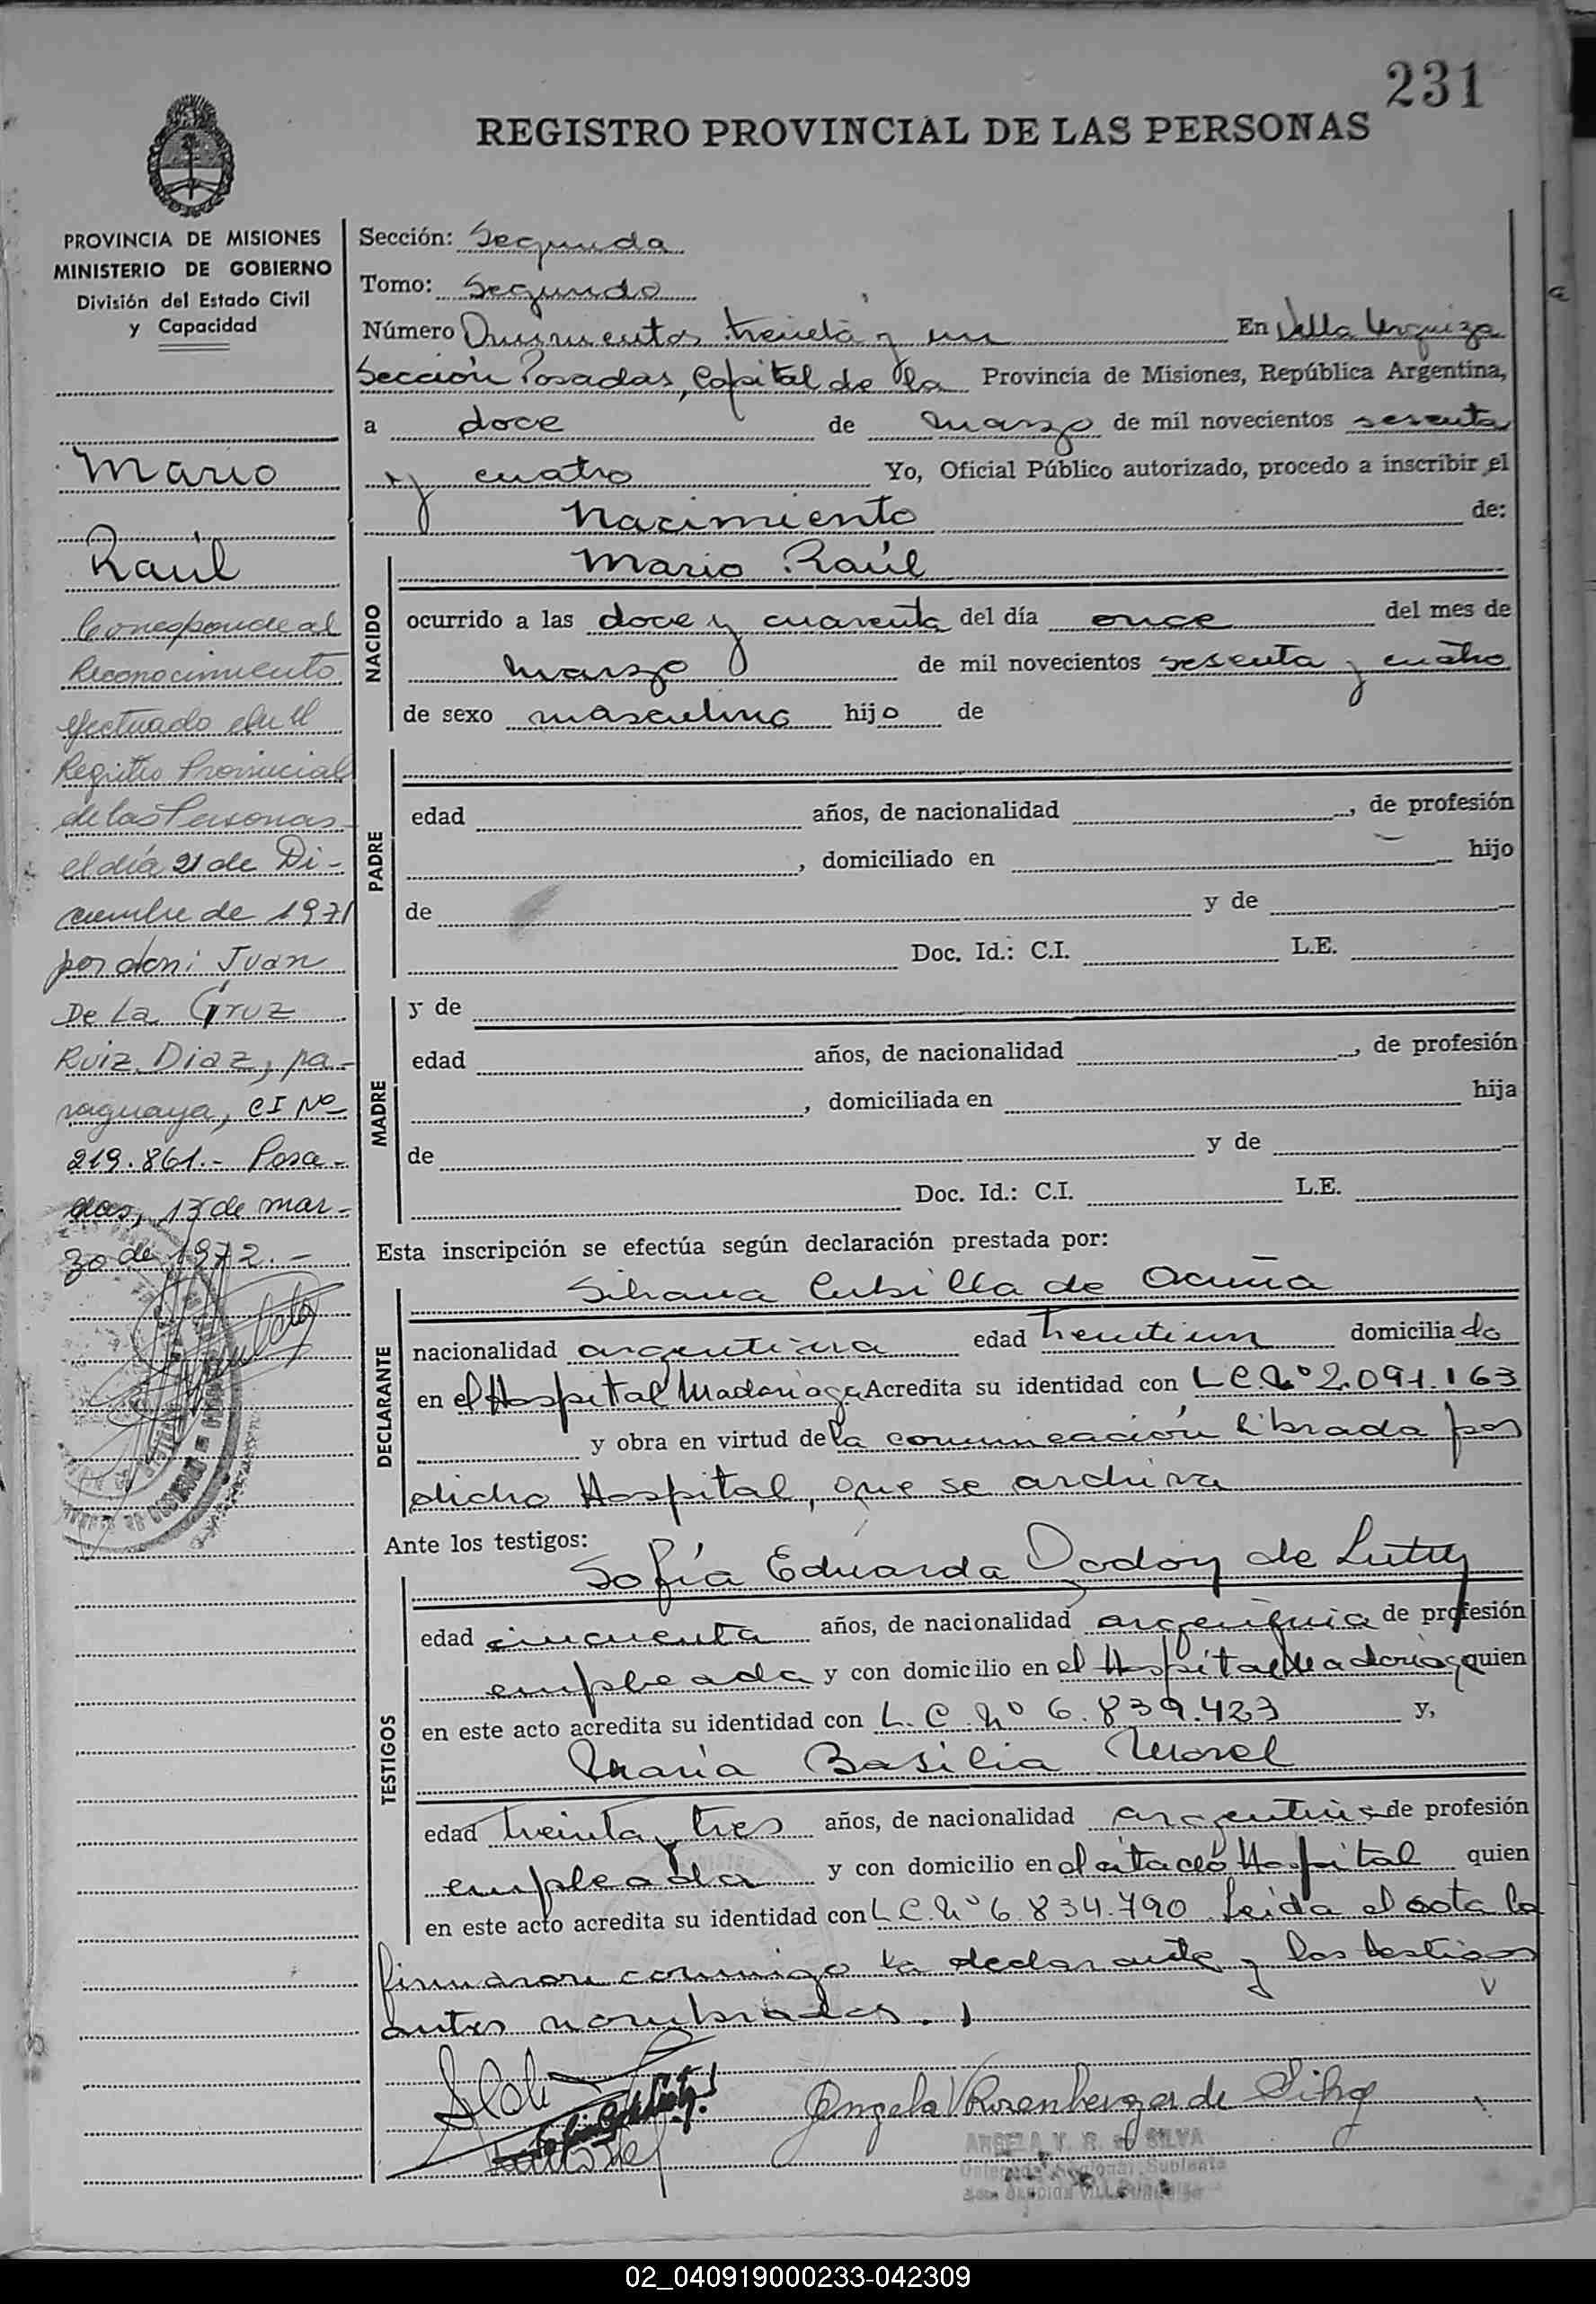 231
REGISTRO PROVINCIAL DE LAS PERSONAS
PROVINCIA DE MISIONES
MINISTERIO DE GOBIERNO
División del Estado Civil
y Capacidad
Mario
Raúl
Corresponde al
Reconocimiento
efectuado en el
Registro Provincial
de las Personas
el día 21 de Di-
ciembre de 1971
por don: Juan
De La Cruz
Ruiz Diaz, pa-
raguaya, CI Nº
219.861.- Posa-
das, 13 de mar-
zo de 1972.-
Sección: Segunda
Tomo: Segundo
Número Quinientos treinta y un En Villa Urquiza
Sección Posadas, Capital de la Provincia de Misiones, República Argentina,
a doce de marzo de mil novecientos sesenta
y cuatro Yo, Oficial Público autorizado, procedo a inscribir el
Nacimiento de:
NACIDO
Mario Raúl
ocurrido a las doce y cuarenta del día once del mes de
marzo de mil novecientos sesenta y cuatro
de sexo masculino hijo de
PADRE
edad años, de nacionalidad , de profesión
, domiciliado en hijo
de y de
Doc. Id.: C.I. L.E.
MADRE
y de
edad años, de nacionalidad , de profesión
, domiciliada en hija
de y de
Doc. Id.: C.I. L.E.
Esta inscripción se efectúa según declaración prestada por:
DECLARANTE
Silvana Cubilla de Acuña
nacionalidad argentina edad treintiun domiciliado
en el Hospital Madariaga Acredita su identidad con L.C. Nº 2.091.163
y obra en virtud de la comunicación librada por
dicho Hospital, que se archiva
Ante los testigos:
TESTIGOS
Sofía Eduarda Godoy de
edad cincuenta años, de nacionalidad argentina de profesión
empleada y con domicilio en el Hospital Madariaga quien
en este acto acredita su identidad con L.C. Nº 6.839.423 y,
María Basilia Morel
edad treinta y tres años, de nacionalidad argentina de profesión
empleada y con domicilio en el citado Hospital quien
en este acto acredita su identidad con L.C. Nº 6.834.790 Leida el acta la
firmaron conmigo la declarante y los testigos
antes nombrados.
Angela V Rosenberger de Silva
ANGELA V. R. de SILVA
02_040919000233-042309